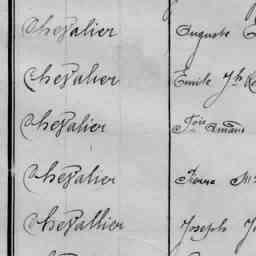 Chevalier Auguste
Chevalier Emile Jh
Chevalier Fois Amand
Chevalier Pierre
Chevallier Joseph